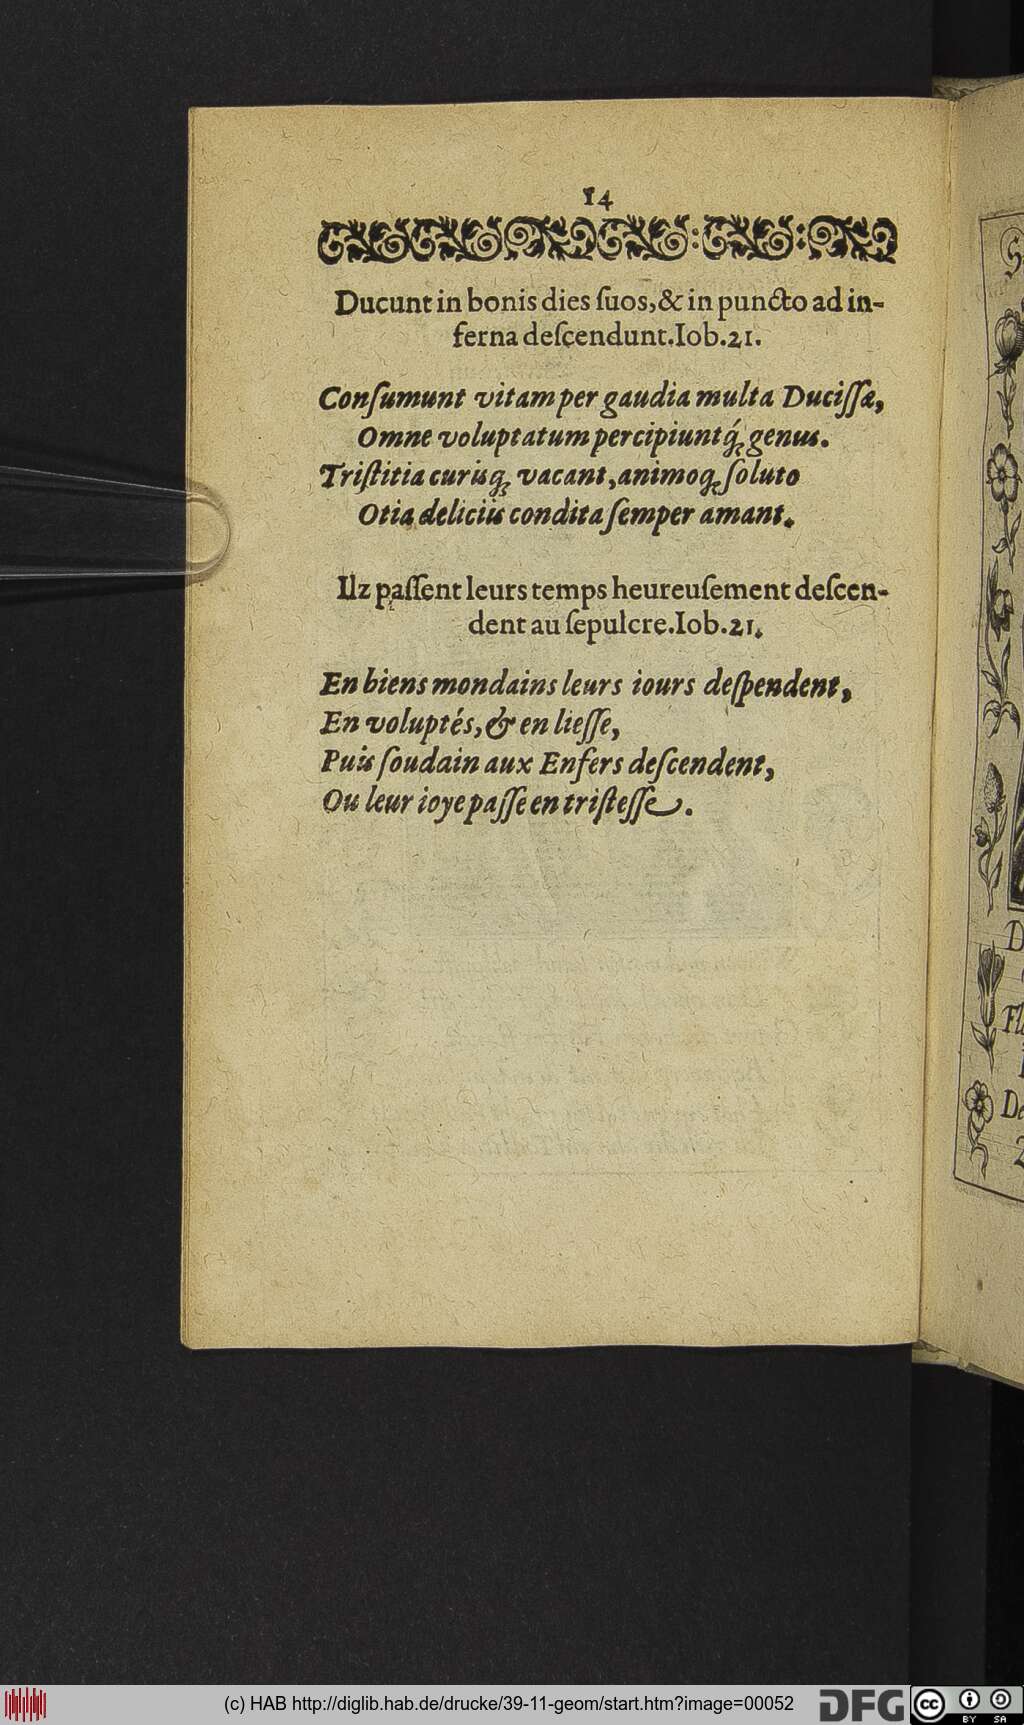 14
Ducunt in bonis dies ſuos, & in puncto ad in-
ferna deſcendunt. Iob. 21.
Conſumunt vitam per gaudia multa Duciſſæ,
Omne voluptatum percipiuntq́ꝫ genus.
Triſtitia curisqꝫ vacant, animoqꝫ ſoluto
Otia deliciis condita ſemper amant.
Ilz paſſent leurs temps heureuſement deſcen-
dent au ſepulcre. Iob. 21.
En biens mondains leurs iours deſpendent,
En voluptés, & en lieſſe,
Puis ſoudain aux Enfers deſcendent,
Ou leur ioye paſſe en triſteſſe.
(c) HAB http://diglib.hab.de/drucke/39-11-geom/start.htm?image=00052
DFG
cc
BY SA